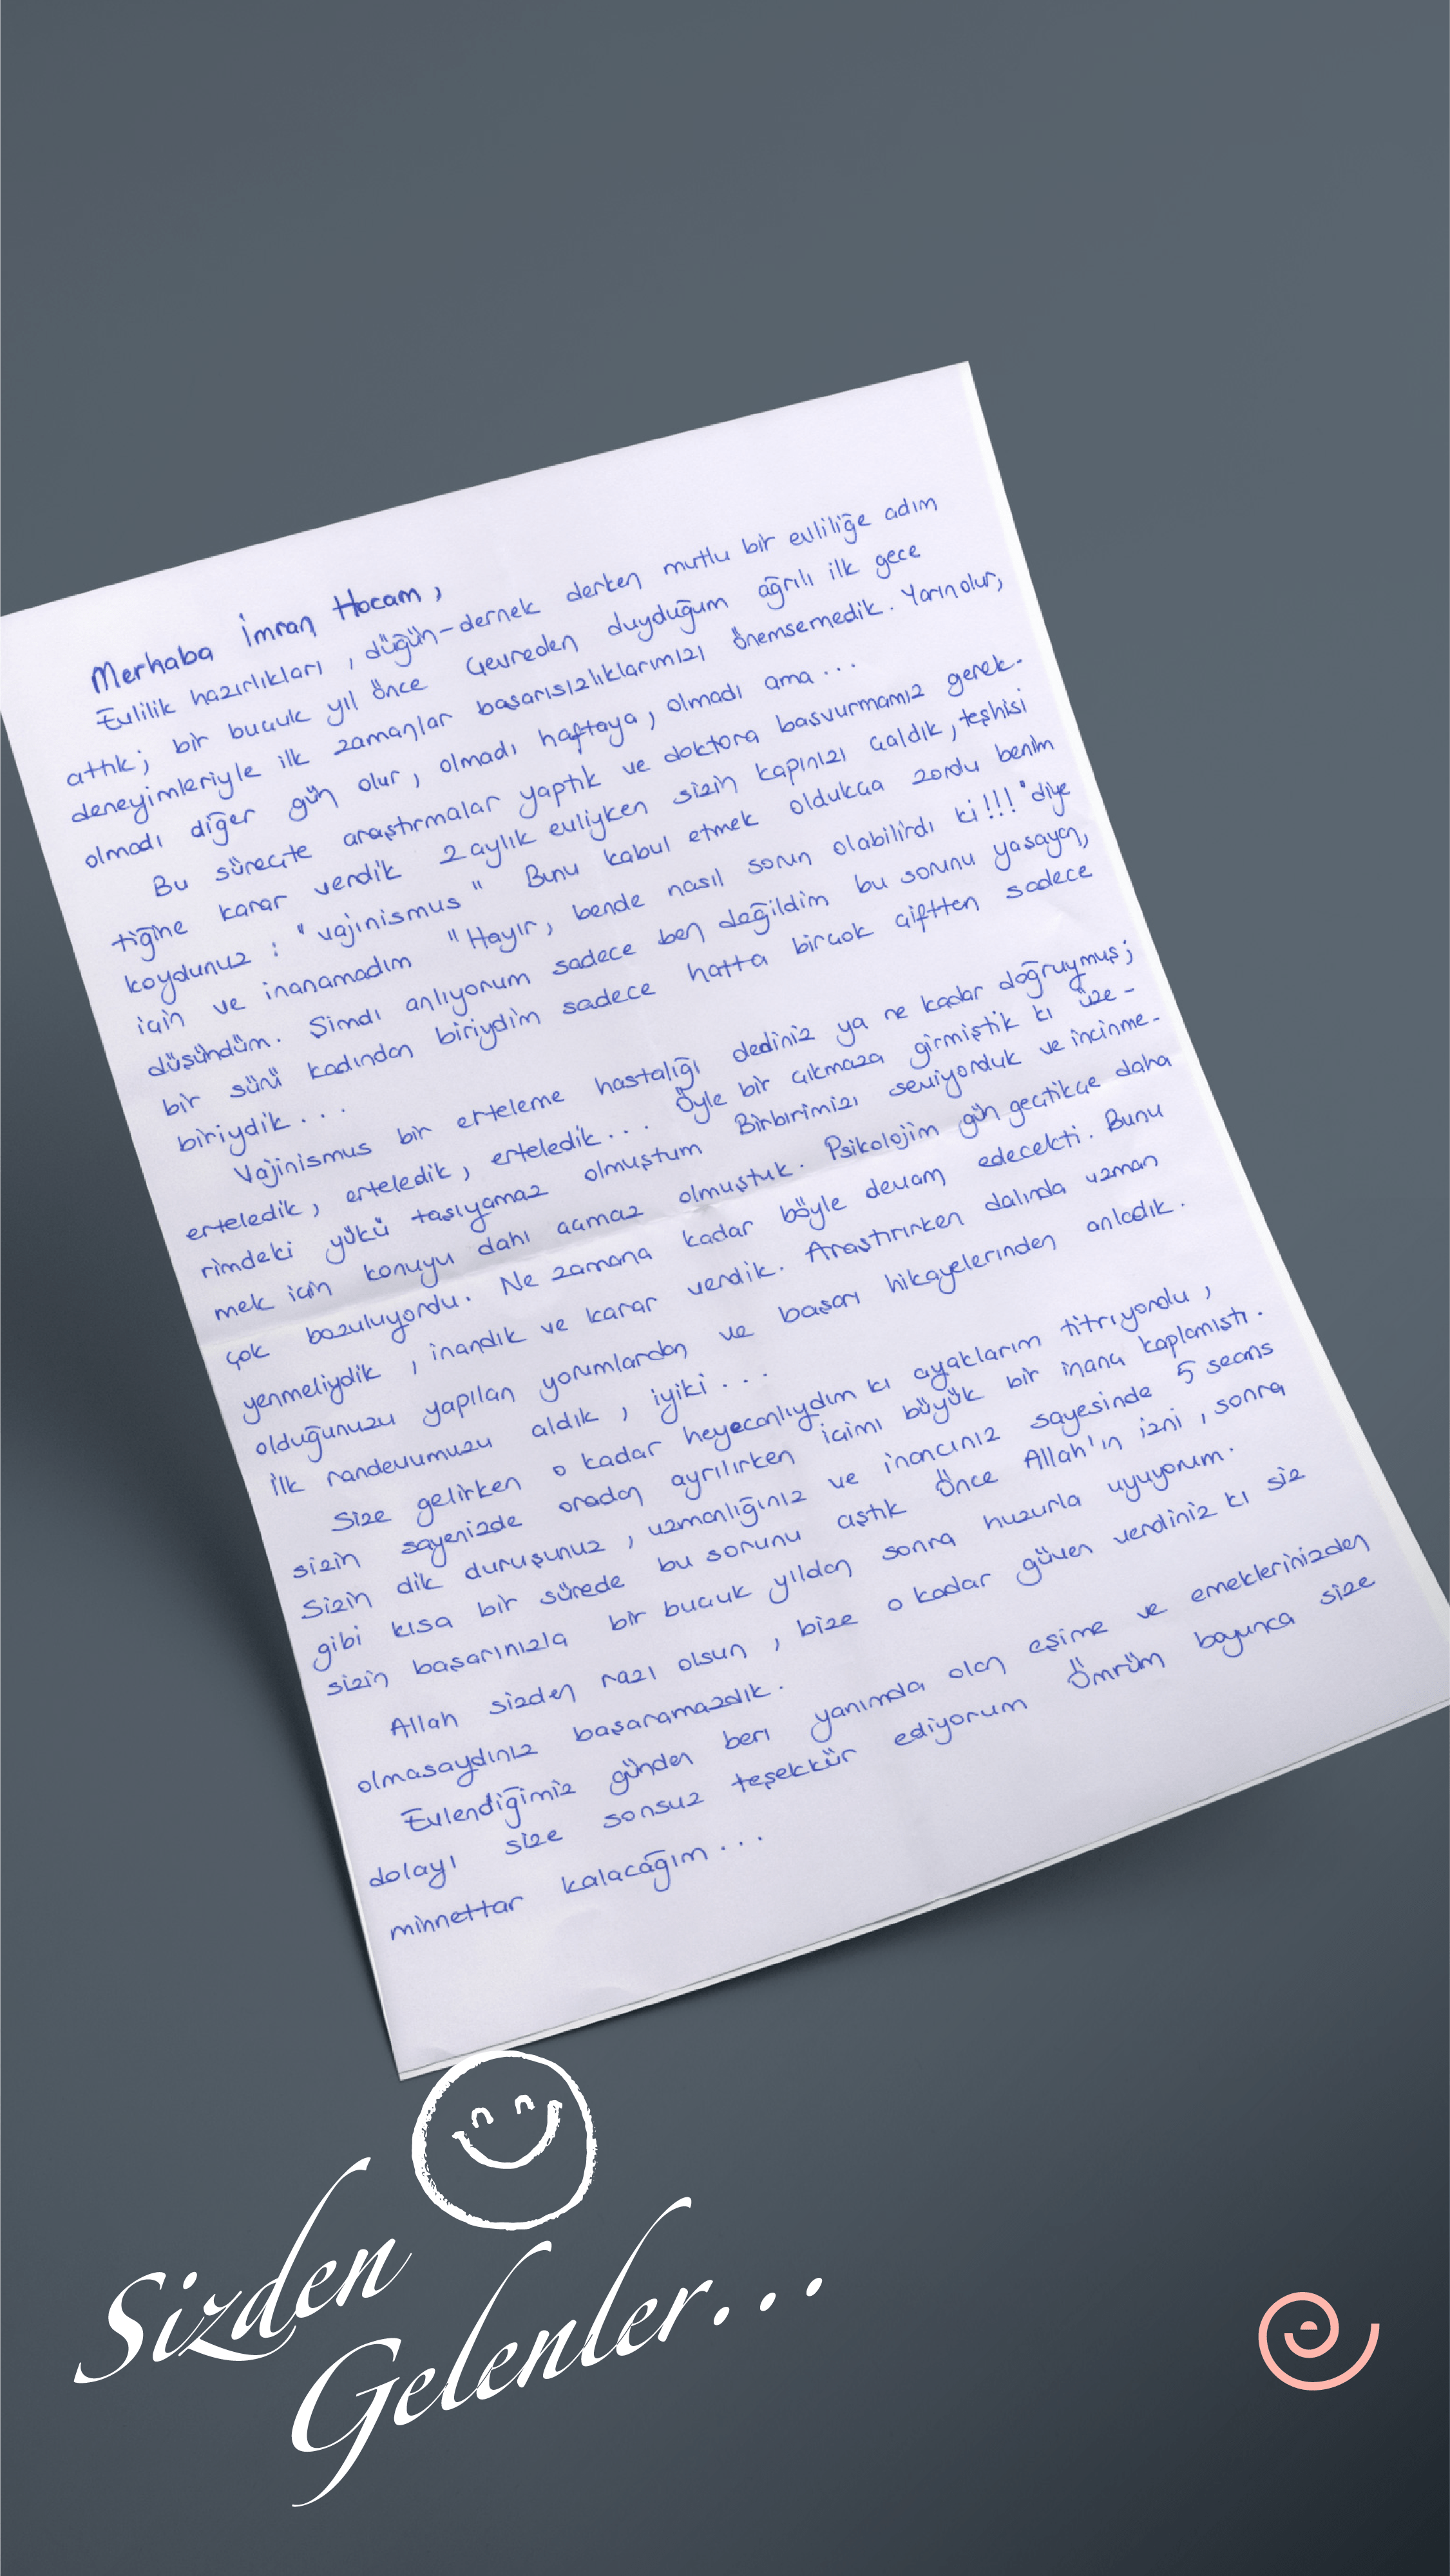 Merhaba İmran Hocam,
Evlilik hazırlıkları, düğün-dernek derken mutlu bir evliliğe adım
attık; bir buçuk yıl önce Çevreden duyduğum ağrılı ilk gece
deneyimleriyle ilk zamanlar başarısızlıklarımızı önemsemedik. Yarın olur,
olmadı diğer gün olur, olmadı haftaya, olmadı ama...
Bu süreçte araştırmalar yaptık ve doktora başvurmamız gerek-
tiğine karar verdik 2 aylık evliyken sizin kapınızı çaldık, teşhisi
koydunuz : "vajinismus" Bunu kabul etmek oldukça zordu benim
için ve inanamadım "Hayır, bende nasıl sorun olabilirdi ki!!!" diye
düşündüm. Şimdi anlıyorum sadece ben değildim bu sorunu yaşayan,
bir sürü kadından biriydim sadece hatta birçok çiftten sadece
biriydik...
Vajinismus bir erteleme hastalığı dediniz ya ne kadar doğruymuş;
erteledik, erteledik, erteledik... Öyle bir çıkmaza girmiştik ki üze-
rimdeki yükü taşıyamaz olmuştum Birbirimizi seviyorduk ve incinme-
mek için konuyu dahi açmaz olmuştuk. Psikolojim gün geçtikçe daha
çok bozuluyordu. Ne zamana kadar böyle devam edecekti. Bunu
yenmeliydik, inandık ve karar verdik. Araştırırken dalında uzman
olduğunuzu yapılan yorumlardan ve başarı hikayelerinden anladık.
İlk randevumuzu aldık, iyiki...
Size gelirken o kadar heyecanlıydım ki ayaklarım titriyordu,
sizin sayenizde oradan ayrılırken içimi büyük bir inanç kaplamıştı.
Sizin dik duruşunuz, uzmanlığınız ve inancınız sayesinde 5 seans
gibi kısa bir sürede bu sorunu aştık Önce Allah'ın izni, sonra
sizin başarınızla bir buçuk yıldan sonra huzurla uyuyorum.
Allah sizden razı olsun, bize o kadar güven verdiniz ki siz
olmasaydınız başaramazdık.
Evlendiğimiz günden beri yanımda olan eşime ve emeklerinizden
dolayı size sonsuz teşekkür ediyorum Ömrüm boyunca size
minnettar kalacağım...
Sizden
Gelenler...